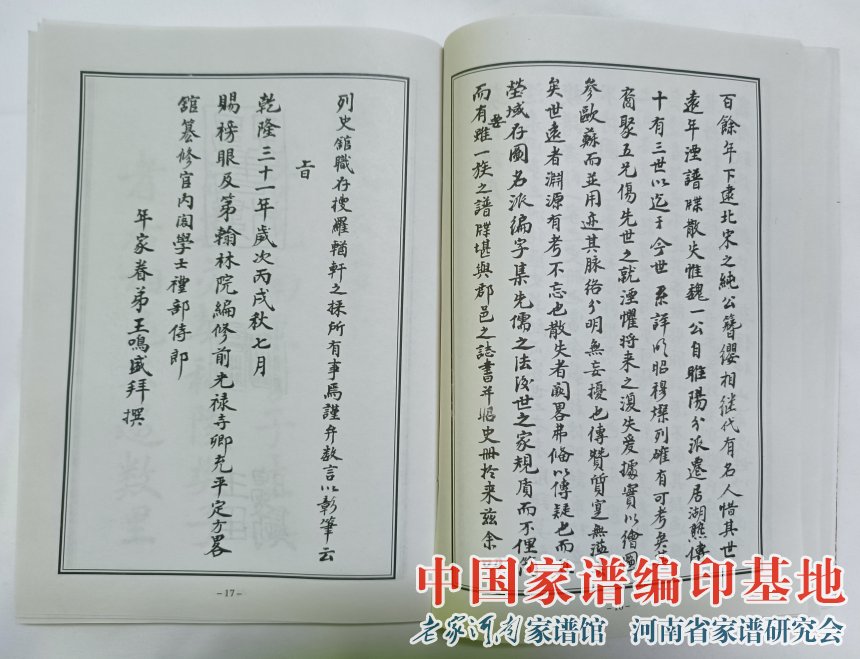 百餘年下逮北宋之純公簪纓相继代有名人惜其世
遠年湮譜牒散失惟魏一公自睢陽分派遷居湖熟傳
十有三世以迄于今世系詳明昭穆燦列確有可考矣
商聚五兄傷先世之就湮懼将来之復失爰據實以繪圖
參歐蘇而並用亦其脉络分明無妄擾也傳贊質寔無
矣世遠者淵源有考不忘也散失者闕畧弗偹以傳疑也而
塋域存圖名派编字集先儒之法後世之家規質而不俚
而有要雖一族之譜牒堪與郡邑之誌書并昭史册扵来兹余
-16-
列史舘職存搜羅輶軒之採所有事焉謹弁数言以彰筆云
旹
乾隆三十一年歲次丙戌秋七月
賜榜眼及第翰林院編修前光禄寺卿充平定方畧
舘纂修官内閣學士禮部侍郎
年家眷弟王鳴盛拜撰
-17-
中国家谱编印基地
老家河南家谱馆 河南省家谱研究会